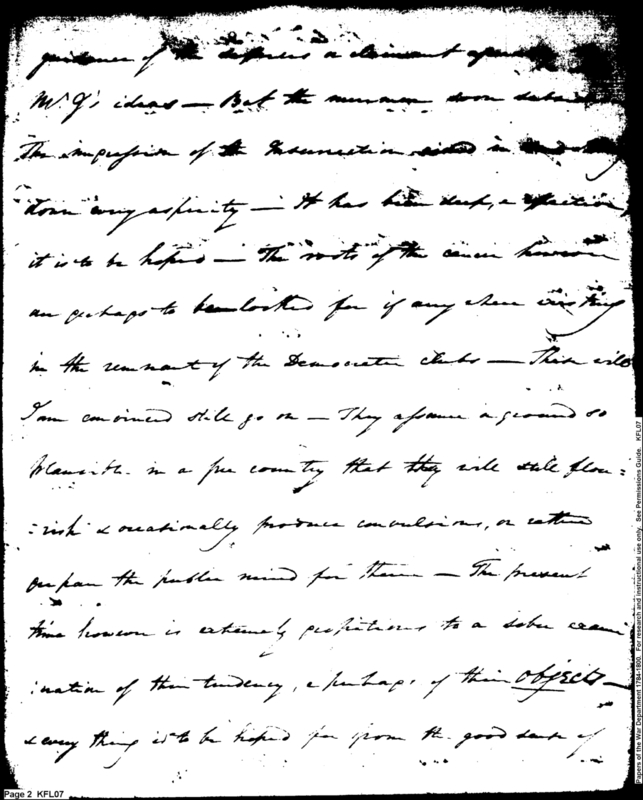 guidance of the a claimant
Mr. G's ideas — But the murmur soon subsided
The impression of the Insurrection aided in
down every asperity — It has been deep, & effective,
it is to be hoped — The roots of the cancer however
are perhaps to be looked for if any where existing
in the remnant of the Democratic Clubs — These will
I am convinced still go on — They assume a ground so
plausible in a free country that they will still flou=
=rish & occasionally produce convulsions, or rather
prepare the public mind for them — The present
time however is extremely propitious to a sober exami
:nation of their tendency, & perhaps of their objects —
& every thing is to be hoped for from the good sense of
Page 2 KFL07
Papers of the War Department 1784-1800. For research and instructional use only. See Permissions Guide. KFL07